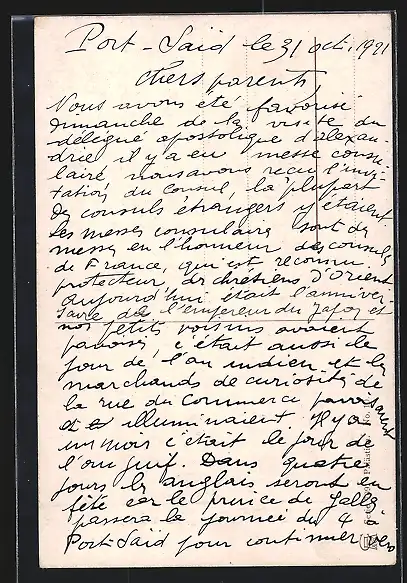 Port-Said le 31 oct. 1921
chers parents,
Nous avons été favorisé
dimanche de la visite du
délégué apostolique d'alexan-
drie il y a eu messe consu-
laire nous avons reçu l'invi-
tation du Consul, la plupart
des consuls étrangers y étaient
Les messes consulaire sont des
messes en l'honneur des consuls
de France, qui est reconnu
protecteur des chrétiens d'Orient
aujourd'hui était l'anniver-
saire de l'empereur du Japon et
nos petits voisins avaient
pavoisé, c'était aussi le
jour de l'an indien et les
marchands de curiosités de
la rue du Commerce pavoisaient
et illuminaient. Il y a
un mois c'était le jour de
l'an juif. Dans quatre
jours les anglais seront en
fête car le prince de Galles
passera la journée du 4 à
Port-Said pour continuer vers